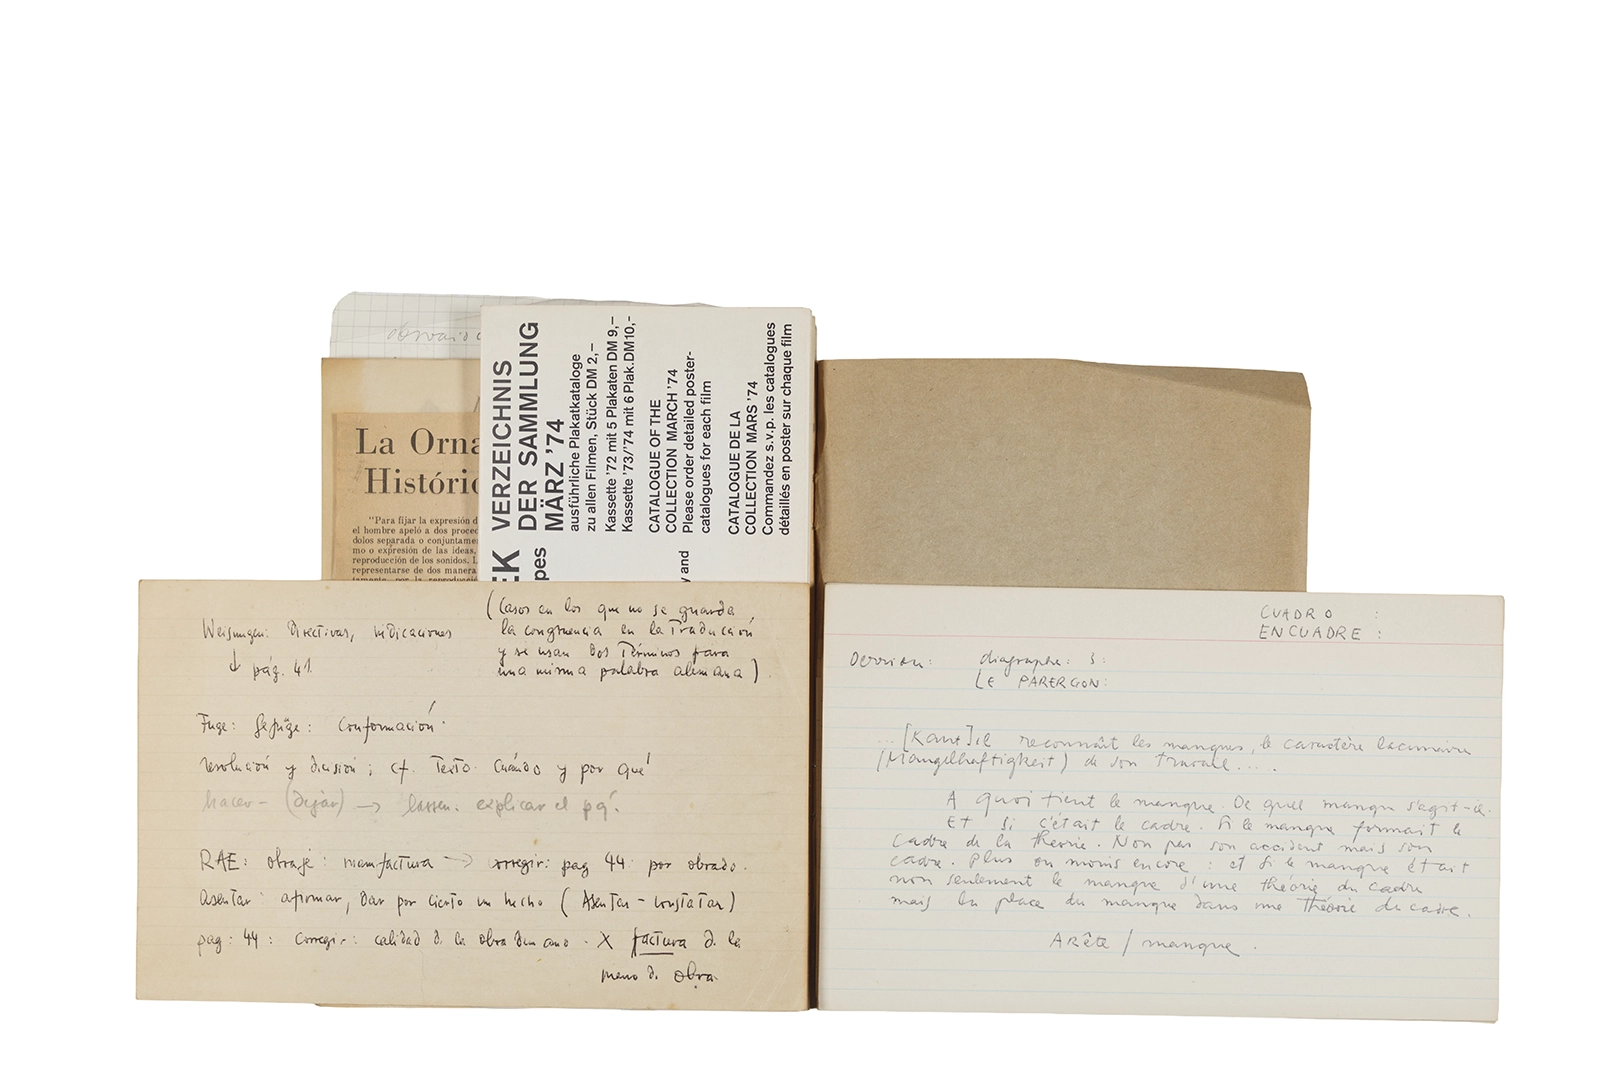 La Orna
Históric
"Para fijar la expresión d
el hombre apeló a dos proced
dolos separada o conjuntame
mo o expresión de las ideas,
reproducción de los sonidos. L
representarse de dos manera
EK VERZEICHNIS
DER SAMMLUNG
MÄRZ '74
pes
ausführliche Plakatkataloge
zu allen Filmen, Stück DM 2,–
Kassette '72 mit 5 Plakaten DM 9,–
Kassette '73/'74 mit 6 Plak.DM10,–
CATALOGUE OF THE
COLLECTION MARCH '74
Please order detailed poster-
catalogues for each film
y and
CATALOGUE DE LA
COLLECTION MARS '74
Commandez s.v.p. les catalogues
détaillés en poster sur chaque film
(Casos en los que no se guarda
la congruencia en la Traducción
y se usan dos Términos para
una misma palabra alemana).
Weisungen: Directivas, indicaciones
↓ pág. 41
Fuge: Gefüge: Conformación.
revolución y decisión; cf. Texto. Cuándo y por qué
hacer – (dejar) → lassen. explicar el pq.
RAE: obraje: manufactura → corregir: pag 44 por obrado.
Asentar: afirmar, Dar por cierto un hecho (Asentar – constatar)
pag: 44: corregir: calidad de la obra de mano. X factura de la
mano de obra.
CUADRO :
ENCUADRE :
Derrida: diagraphe: 3:
LE PARERGON:
... [Kant] il reconnaît les manques, le caractère lacunaire
(Mangelhaftigkeit) de son Travail....
A quoi tient le manque. De quel manque s'agit-il.
Et si c'était le cadre. Si le manque formait le
cadre de la théorie. Non pas son accident mais son
cadre. Plus ou moins encore: et si le manque était
non seulement le manque d'une théorie du cadre
mais la place du manque dans une Théorie du cadre.
Arête / manque.